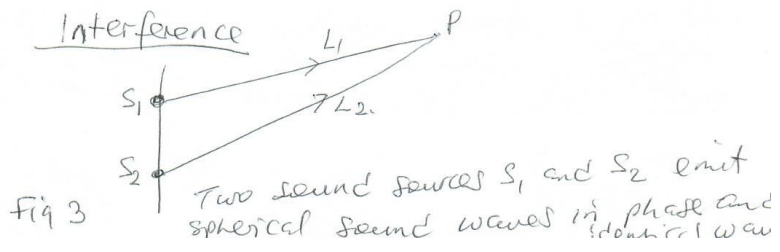 Interference
L₁
P
S₁
L₂.
S₂
Fig 3
Two sound sources S₁ and S₂ emit
spherical sound waves in phase and
identical wav